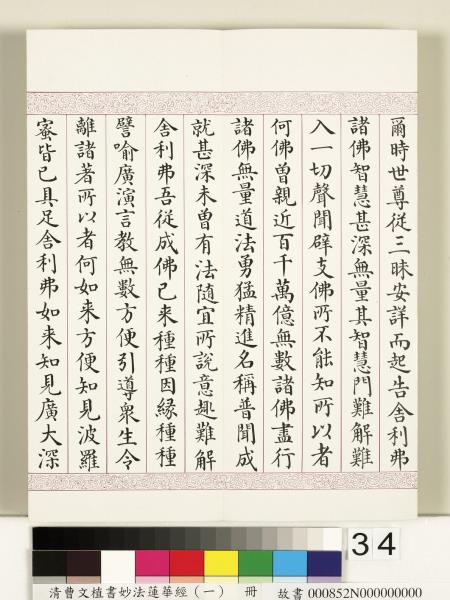 爾時世尊從三昧安詳而起告舍利弗
諸佛智慧甚深無量其智慧門難解難
入一切聲聞辟支佛所不能知所以者
何佛曾親近百千萬億無數諸佛盡行
諸佛無量道法勇猛精進名稱普聞成
就甚深未曾有法隨宜所說意趣難解
舍利弗吾從成佛已來種種因緣種種
譬喻廣演言教無數方便引導眾生令
離諸著所以者何如來方便知見波羅
蜜皆已具足舍利弗如來知見廣大深
34
清曹文植書妙法蓮華經(一) 冊 故書 000852N000000000